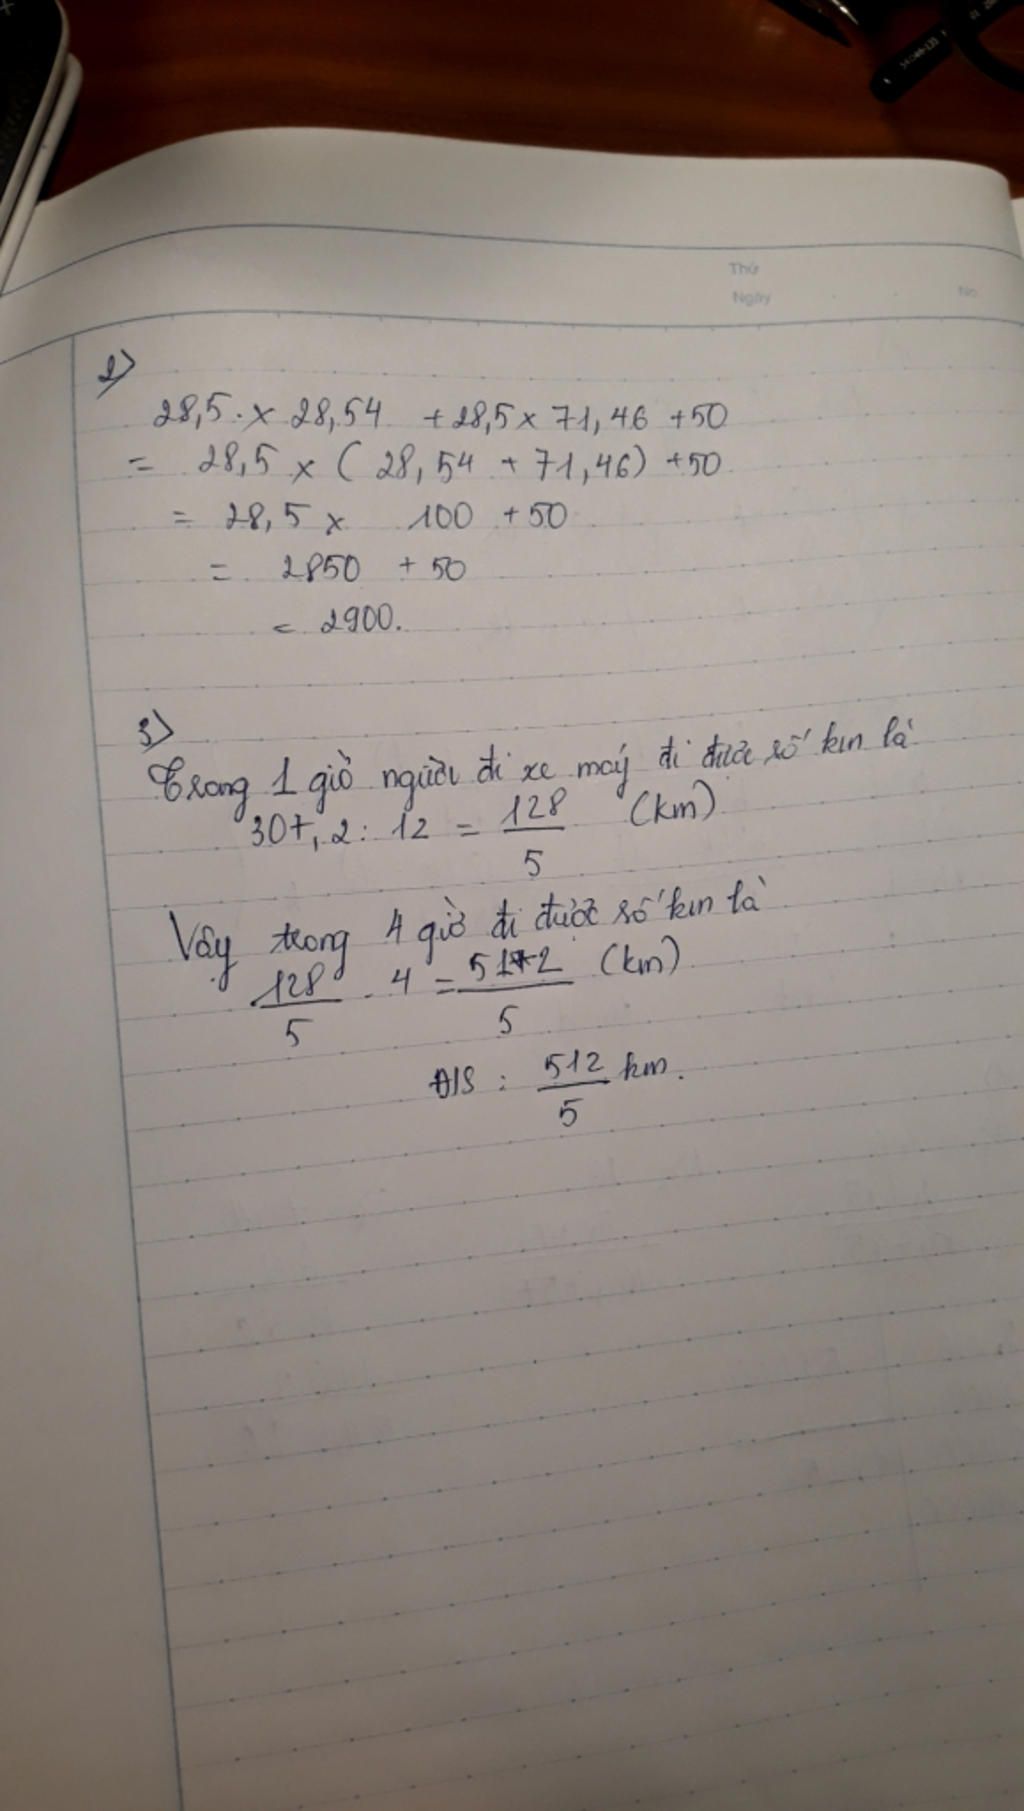 Thứ
Ngày No
2)
28,5 . x 28,54 + 28,5 x 71,46 + 50
= 28,5 x ( 28,54 + 71,46) + 50
= 28,5 x 100 + 50
= 2850 + 50
= 2900.
3)
Trong 1 giờ người đi xe máy đi được số km là
307,2 : 12 = 128/5 (km)
Vậy trong 4 giờ đi được số km là
128/5 . 4 = 512/5 (km)
Đ/S : 512/5 km.